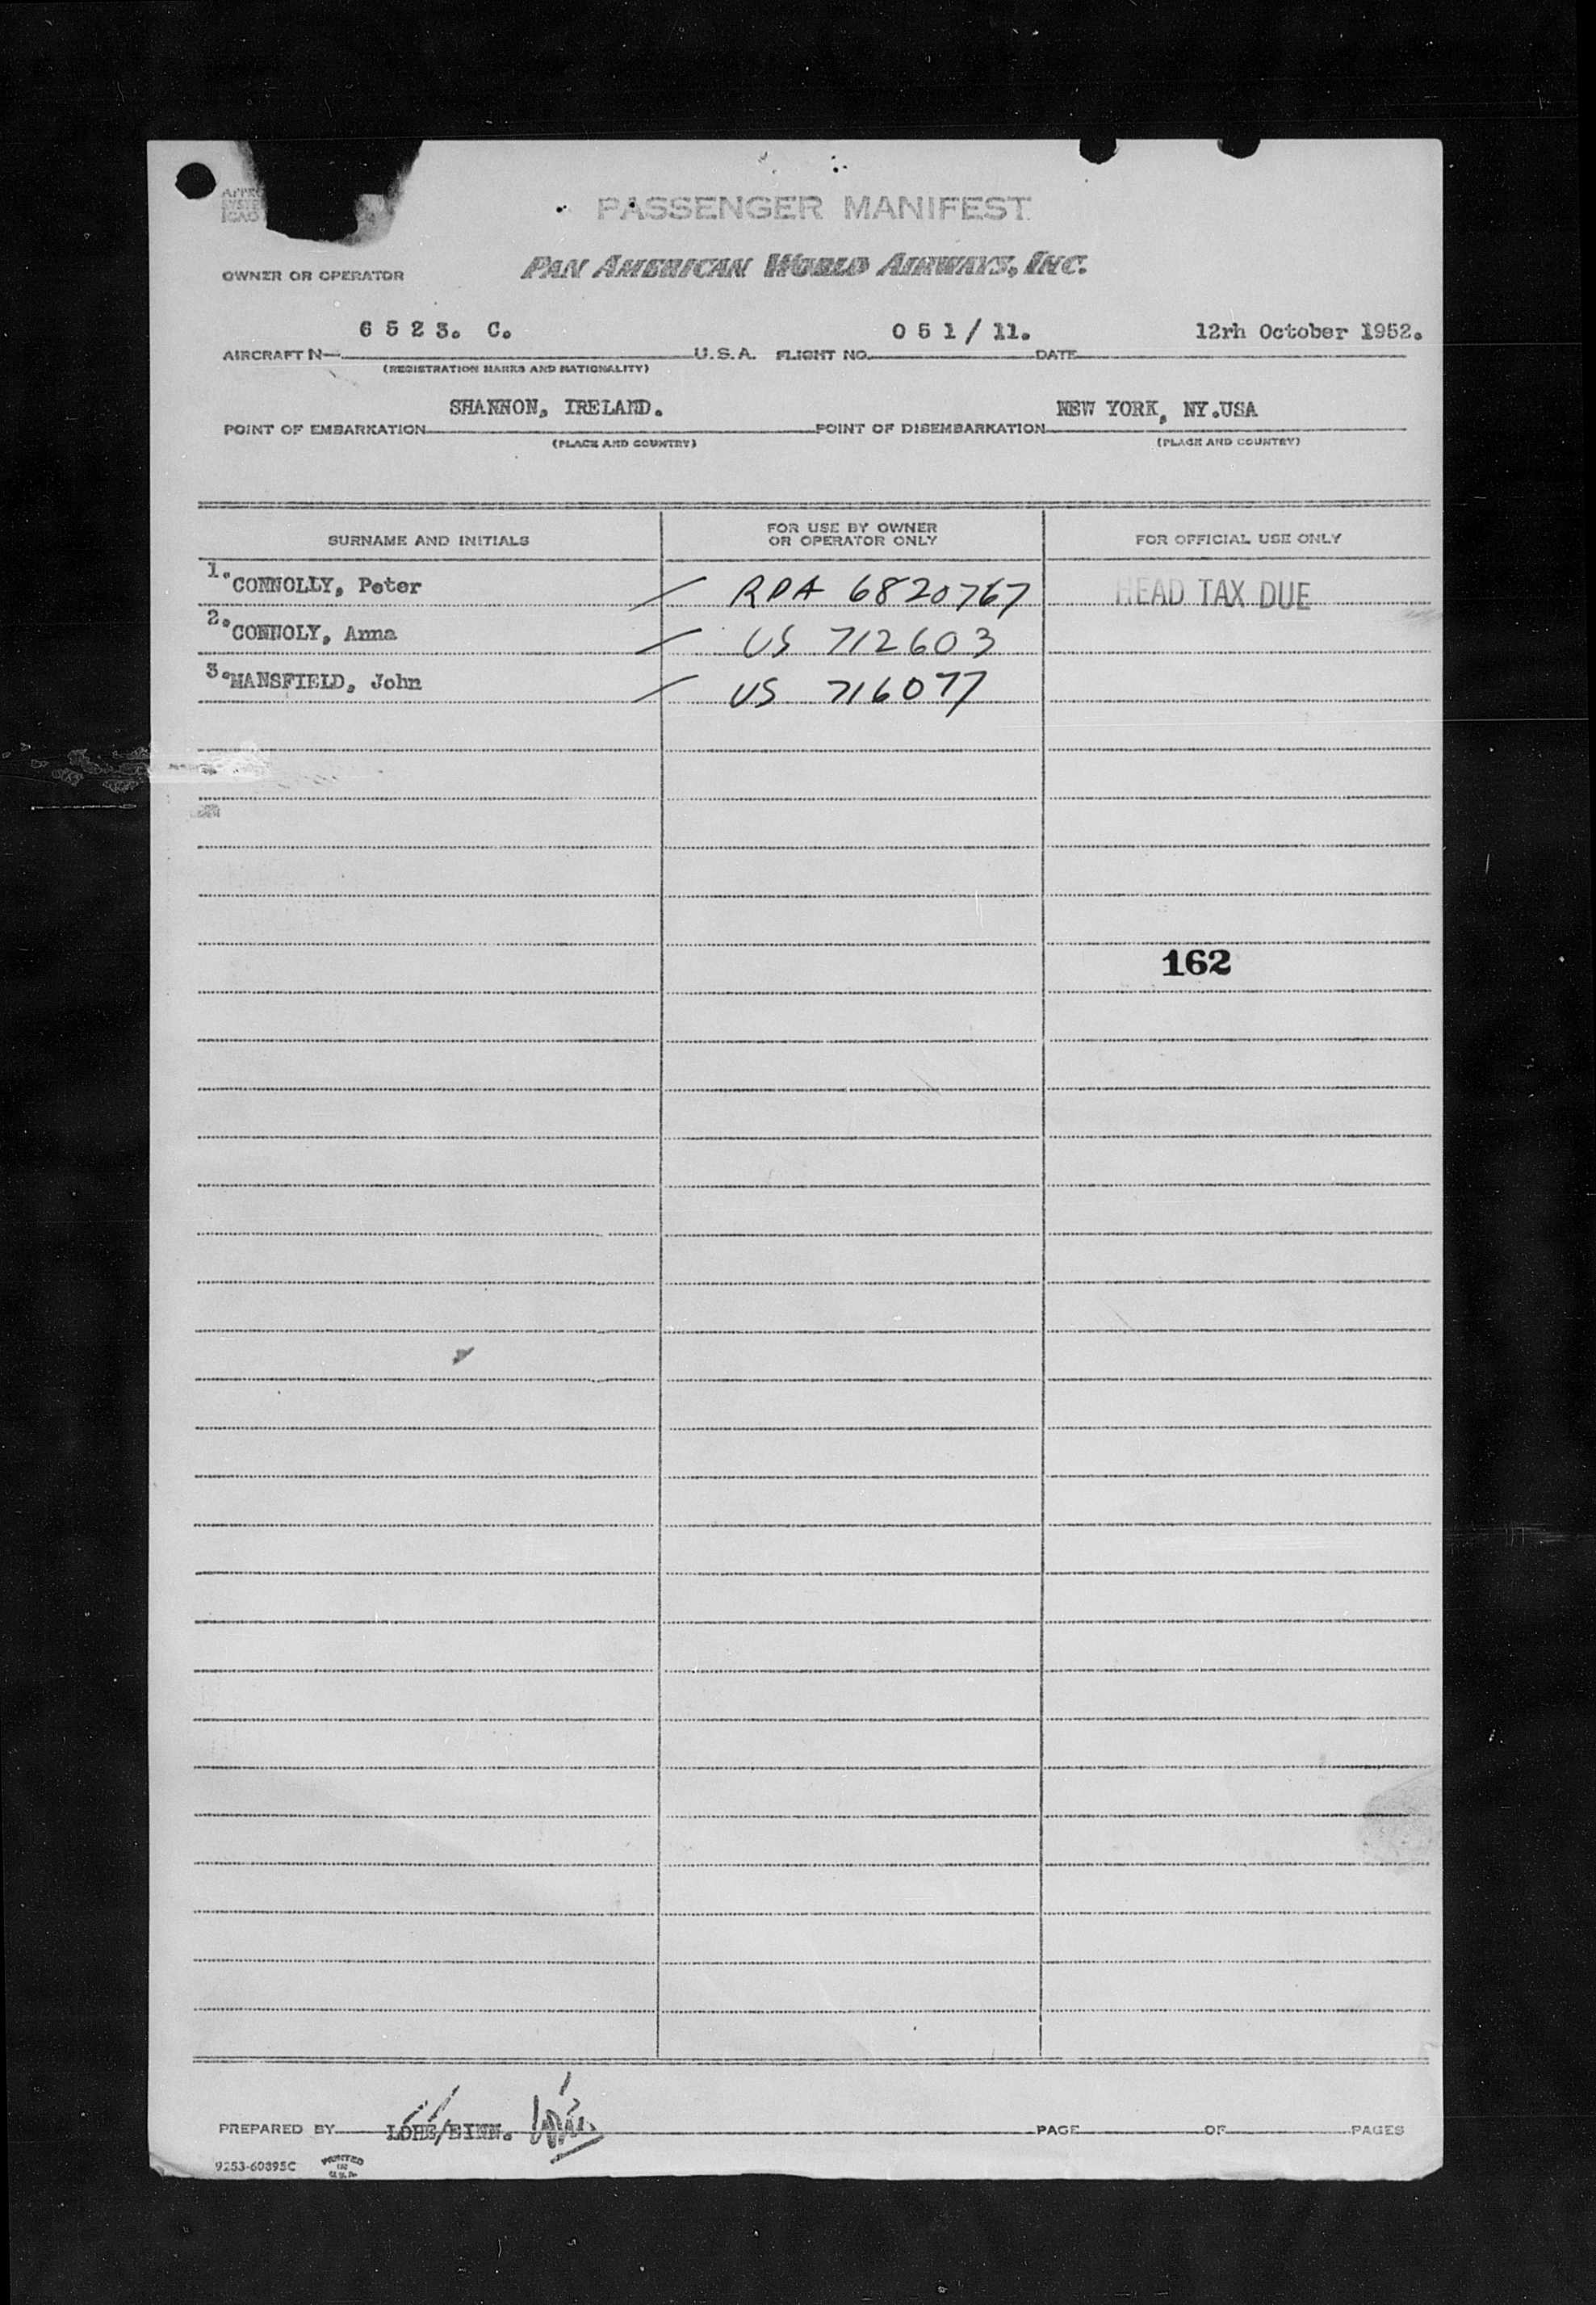 PASSENGER MANIFEST
OWNER OR OPERATOR PAN AMERICAN WORLD AIRWAYS, INC.
AIRCRAFT N— 6 5 2 3. C. U.S.A. FLIGHT NO. 0 5 1 / 11. DATE 12rh October 1952.
(REGISTRATION MARKS AND NATIONALITY)
POINT OF EMBARKATION SHANNON, IRELAND. POINT OF DISEMBARKATION NEW YORK, NY.USA
(PLACE AND COUNTRY) (PLACE AND COUNTRY)
SURNAME AND INITIALS FOR USE BY OWNER OR OPERATOR ONLY FOR OFFICIAL USE ONLY
1. CONNOLLY, Peter RPA 6820767 HEAD TAX DUE
2. CONNOLY, Anna US 712603
3. MANSFIELD, John US 716077
162
PREPARED BY PAGE OF PAGES
9253-60895C PRINTED IN U.S.A.